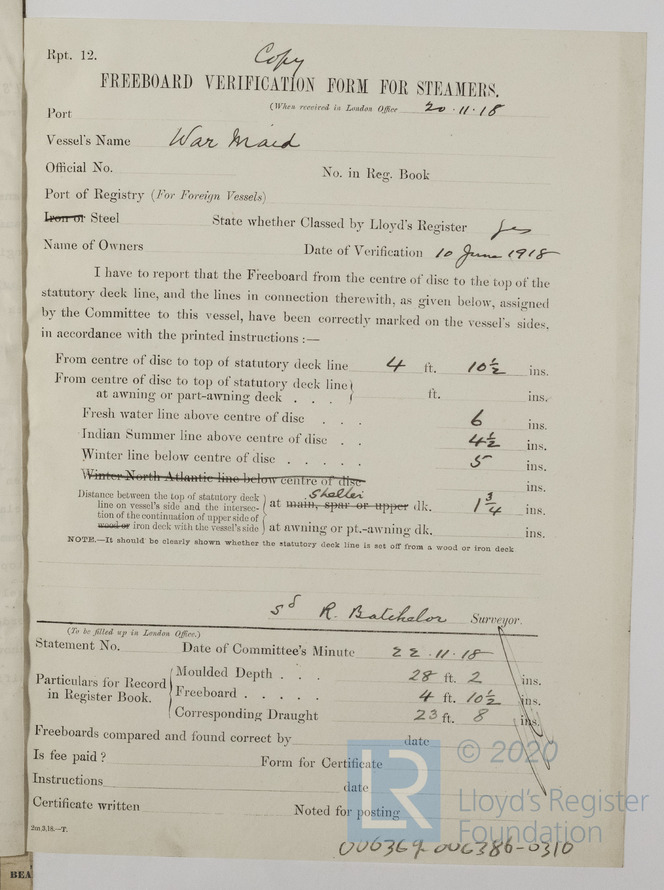 Rpt. 12.
Copy
FREEBOARD VERIFICATION FORM FOR STEAMERS.
(When received in London Office 20.11.18
Port
Vessel's Name War Maid
Official No. No. in Reg. Book
Port of Registry (For Foreign Vessels)
Iron or Steel State whether Classed by Lloyd's Register yes
Name of Owners Date of Verification 10 June 1918
I have to report that the Freeboard from the centre of disc to the top of the
statutory deck line, and the lines in connection therewith, as given below, assigned
by the Committee to this vessel, have been correctly marked on the vessel's sides,
in accordance with the printed instructions :—
From centre of disc to top of statutory deck line 4 ft. 10½ ins.
From centre of disc to top of statutory deck line
at awning or part-awning deck . . . ft. ins.
Fresh water line above centre of disc . . . 6 ins.
Indian Summer line above centre of disc . . 4½ ins.
Winter line below centre of disc . . . . . 5 ins.
Winter North Atlantic line below centre of disc ins.
Distance between the top of statutory deck
line on vessel's side and the intersec-
tion of the continuation of upper side of
wood or iron deck with the vessel's side
shelter
at main, spar or upper dk. 1¾ ins.
at awning or pt.-awning dk. ins.
NOTE.—It should be clearly shown whether the statutory deck line is set off from a wood or iron deck
sd R. Batchelor Surveyor.
(To be filled up in London Office.)
Statement No. Date of Committee's Minute 22.11.18
Particulars for Record
in Register Book.
Moulded Depth . . . 28 ft. 2 ins.
Freeboard . . . . . 4 ft. 10½ ins.
Corresponding Draught 23 ft. 8 ins.
Freeboards compared and found correct by date
Is fee paid? Form for Certificate
Instructions date
Certificate written Noted for posting
2m,3,18.—T.
LR
© 2020
Lloyd's Register
Foundation
006369-006386-0310
BEA